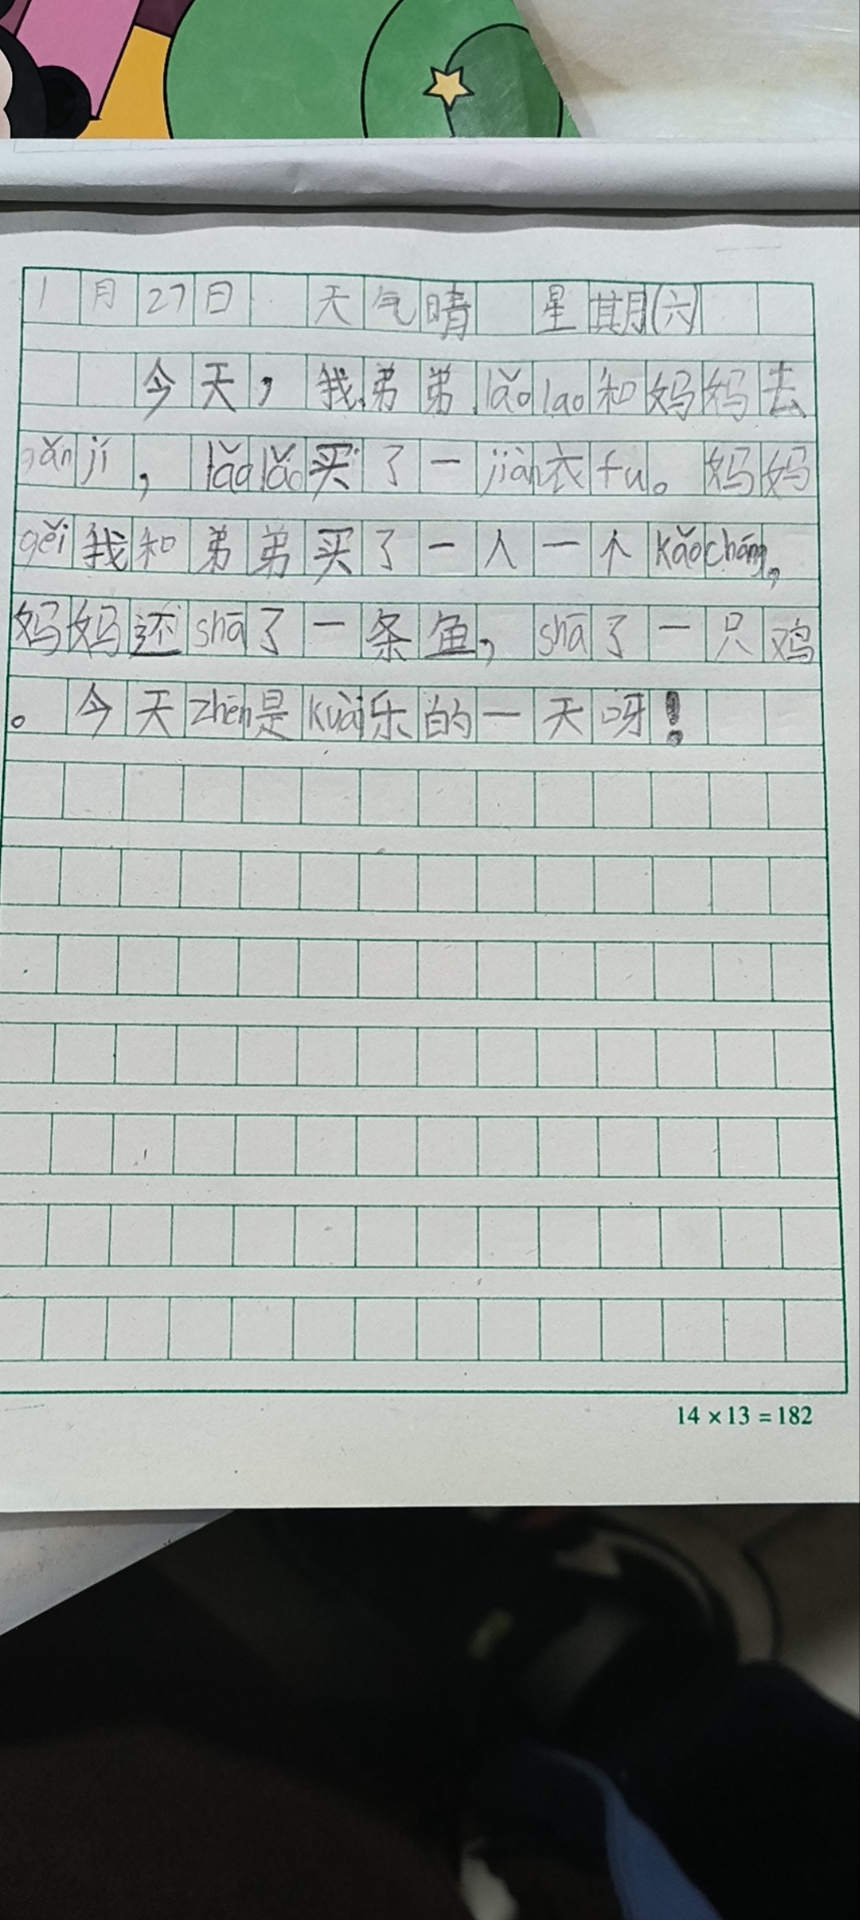 1月27日 天气晴 星期(六)
今天，我、弟弟、lǎo lao和妈妈去
gǎn jí，lǎo lǎo买了一jiàn衣fu。妈妈
gěi我和弟弟买了一人一个kǎo cháng，
妈妈还shā了一条鱼，shā了一只鸡
。今天zhēn是kuài乐的一天呀！
14×13=182